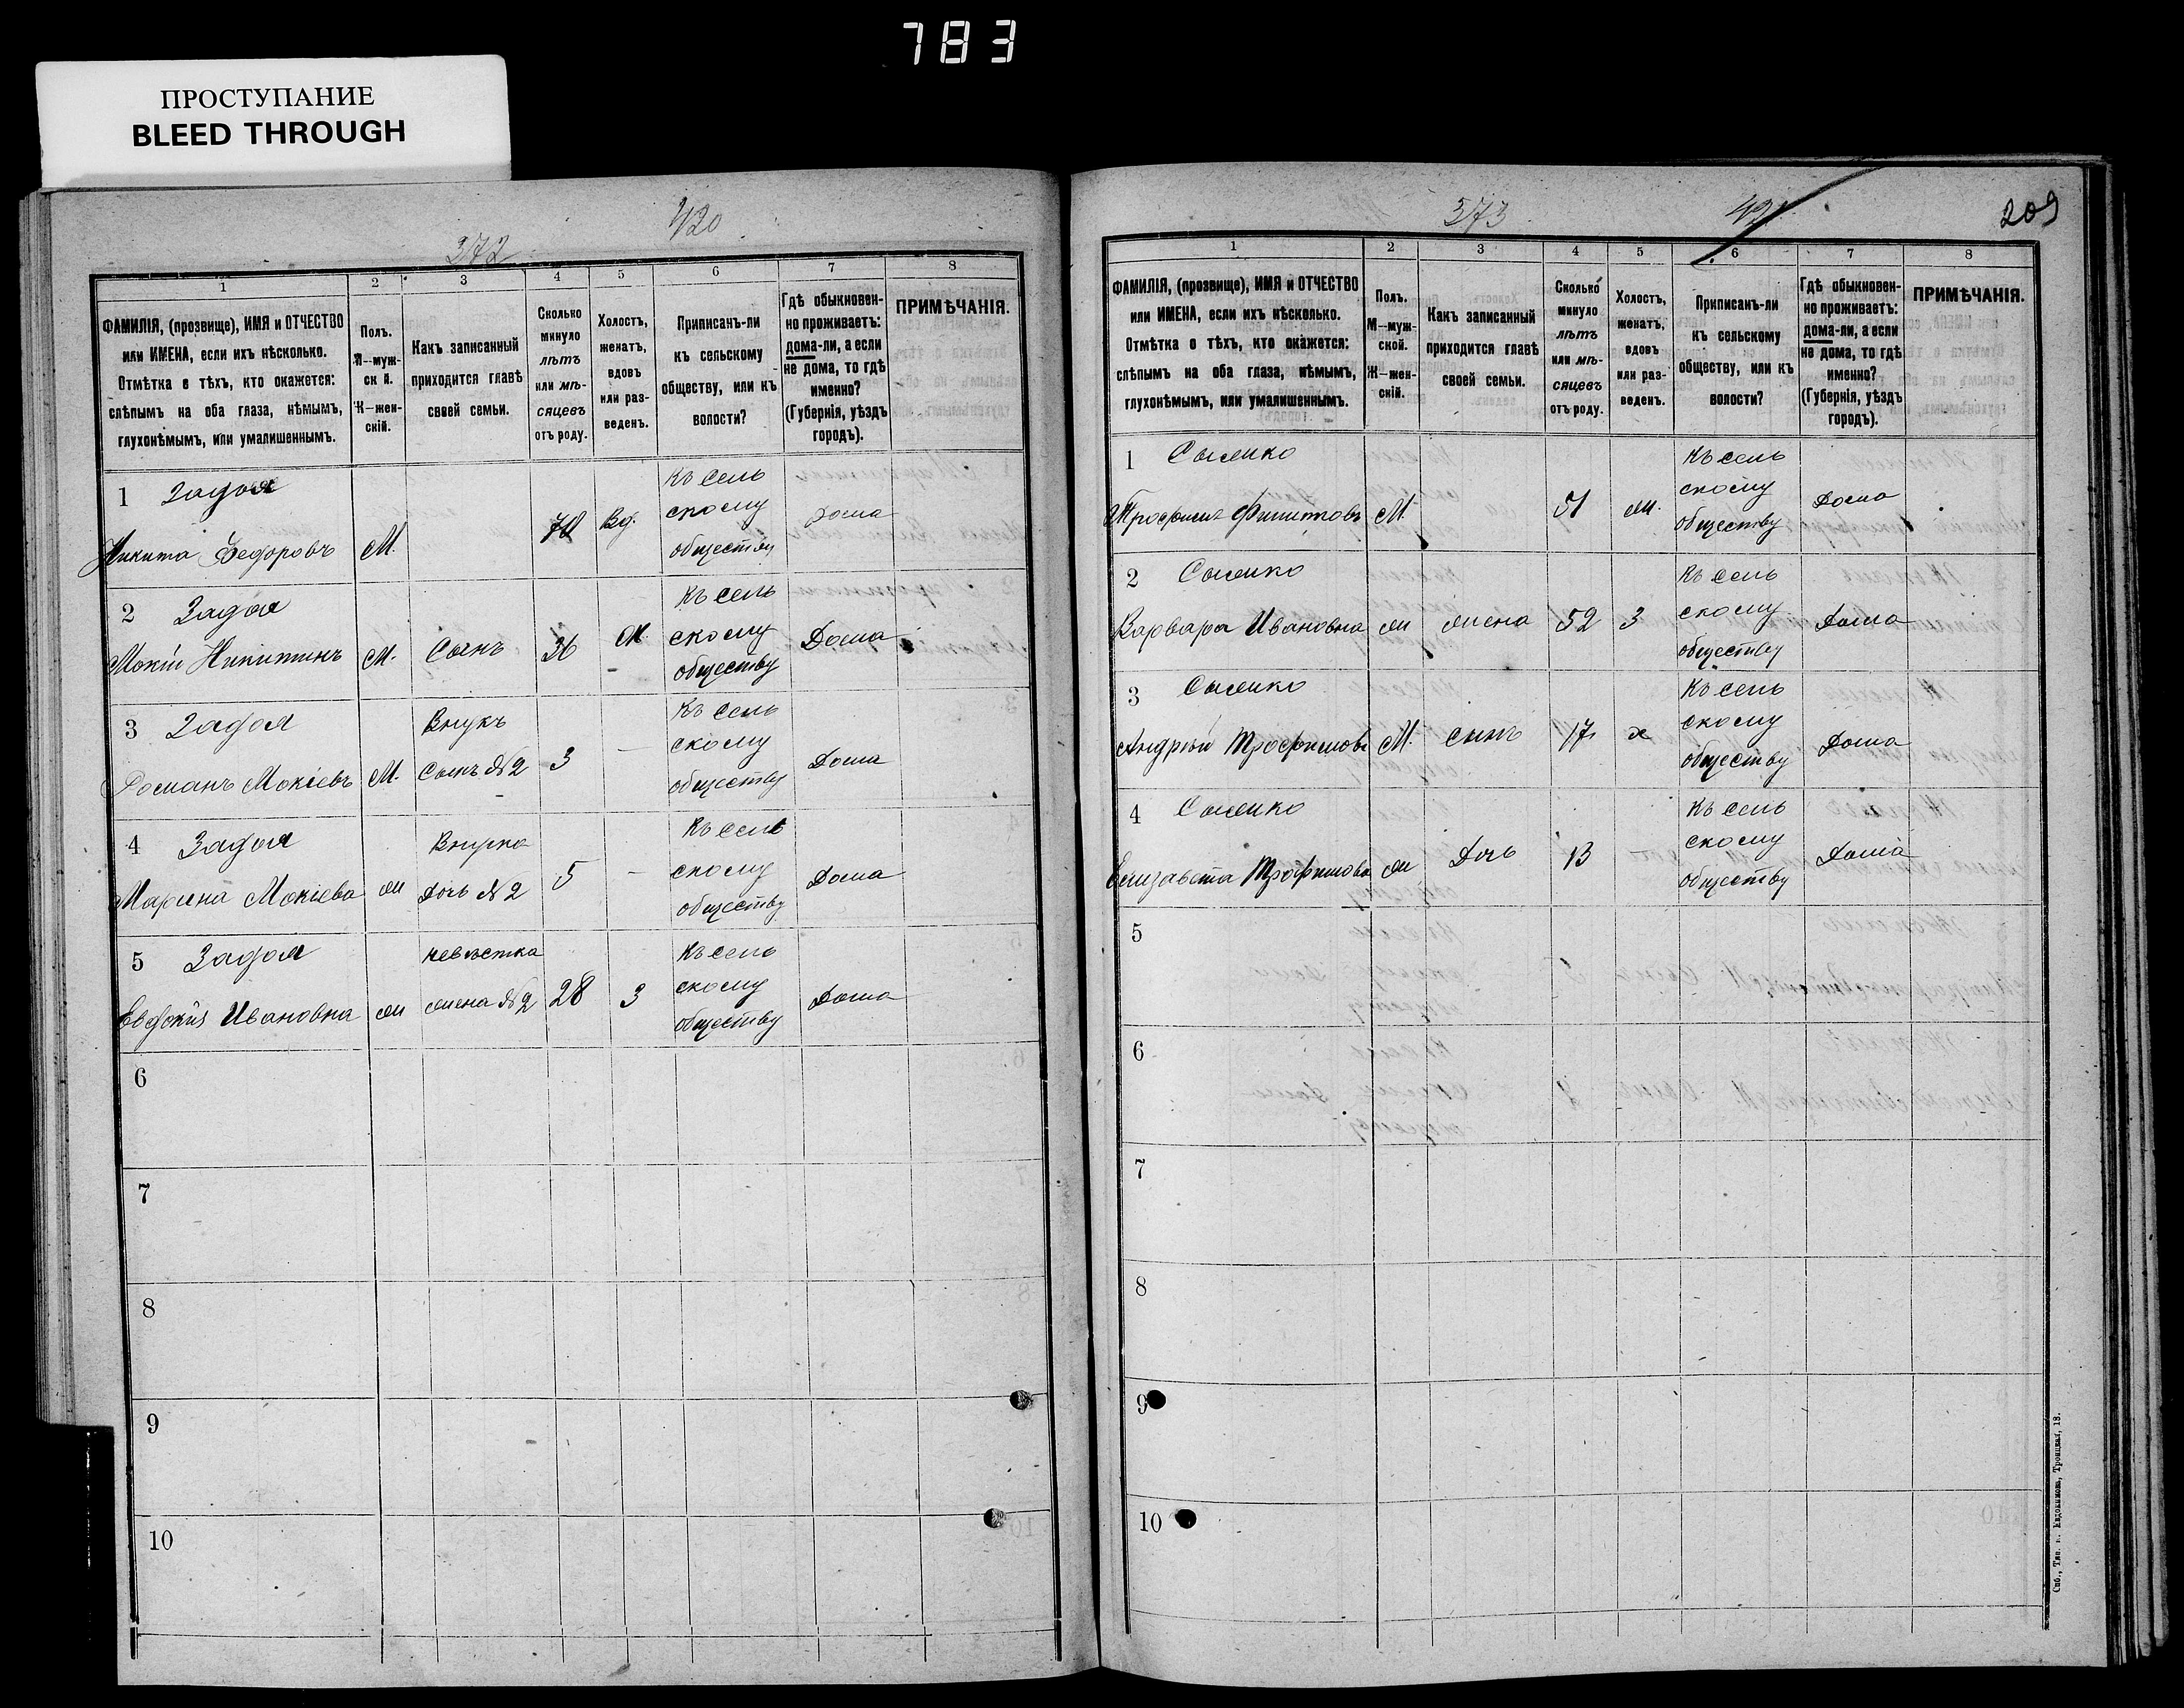 783
ПРОСТУПАНИЕ
BLEED THROUGH
420
372
1 2 3 4 5 6 7 8
ФАМИЛІЯ, (прозвище), ИМЯ и ОТЧЕСТВО
или ИМЕНА, если ихъ нѣсколько.
Отмѣтка о тѣхъ, кто окажется:
слѣпымъ на оба глаза, нѣмымъ,
глухонѣмымъ, или умалишеннымъ.
Полъ.
М—муж-
ск й.
Ж—жен-
скій.
Какъ записанный
приходится главѣ
своей семьи.
Сколько
минуло
лѣтъ
или мѣ-
сяцевъ
отъ роду.
Холостъ,
женатъ,
вдовъ
или раз-
веденъ.
Приписанъ-ли
къ сельскому
обществу, или къ
волости?
Гдѣ обыкновен-
но проживаетъ:
дома-ли, а если
не дома, то гдѣ
именно?
(Губернія, уѣздъ
городъ).
ПРИМѢЧАНІЯ.
1 Задоя
Никита Федоровъ М. 70 Вд. Къ сель
скому
обществу Дома
2 Задоя
Мокій Никитинъ М. Сынъ 36 Ж. Къ сель
скому
обществу Дома
3 Задоя
Романъ Мокіевъ М. Внукъ
Сынъ №2 3 — Къ сель
скому
обществу Дома
4 Задоя
Марина Мокіева ж Внучка
Дочь №2 5 — Къ сель
скому
обществу Дома
5 Задоя
Евдокія Ивановна ж невѣстка
жена №2 28 З Къ сель
скому
обществу Дома
6
7
8
9
10
373
421
209
1 2 3 4 5 6 7 8
ФАМИЛІЯ, (прозвище), ИМЯ и ОТЧЕСТВО
или ИМЕНА, если ихъ нѣсколько.
Отмѣтка о тѣхъ, кто окажется:
слѣпымъ на оба глаза, нѣмымъ,
глухонѣмымъ, или умалишеннымъ.
Полъ.
М—муж-
ской.
Ж—жен-
скій.
Какъ записанный
приходится главѣ
своей семьи.
Сколько
минуло
лѣтъ
или мѣ-
сяцевъ
отъ роду.
Холостъ,
женатъ,
вдовъ
или раз-
веденъ.
Приписанъ-ли
къ сельскому
обществу, или къ
волости?
Гдѣ обыкновен-
но проживаетъ:
дома-ли, а если
не дома, то гдѣ
именно?
(Губернія, уѣздъ
городъ).
ПРИМѢЧАНІЯ.
1
Трофимъ М. 51 ж. Къ сель
скому
обществу Дома
2
Варвара Ивановна ж жена 52 З Къ сель
скому
обществу Дома
3
Андрей Трофимовъ М. сынъ 17 х Къ сель
скому
обществу Дома
4
Елизавета Трофимова ж Дочь 13 — Къ сель
скому
обществу Дома
5
6
7
8
9
10
Спб., Тип. Евдокимова, Троицкая, 18.